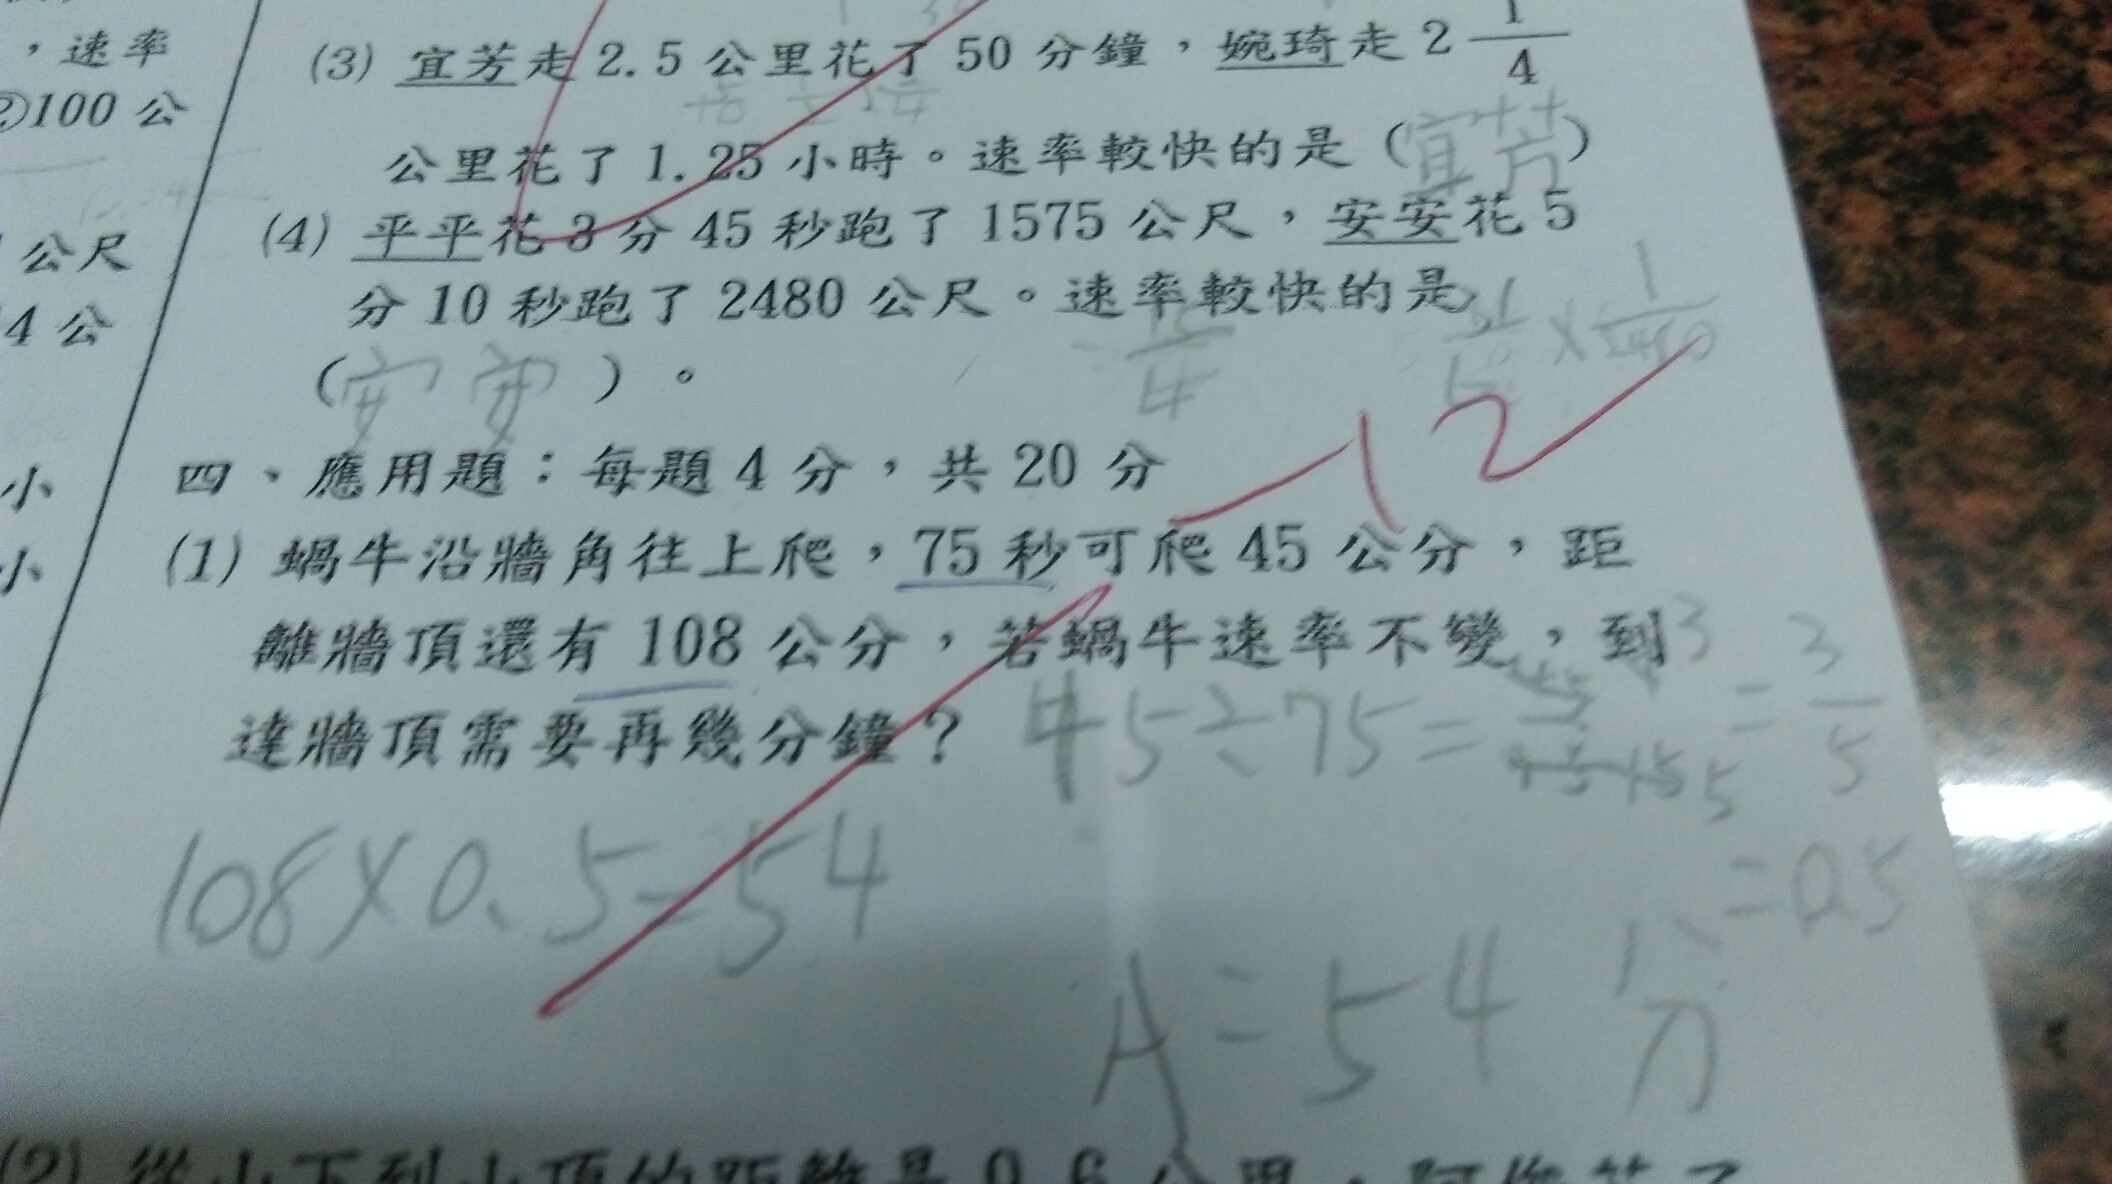 ，速率
②100 公
公尺
4 公
小
小
(3) 宜芳走 2.5 公里花了 50 分鐘，婉琦走 2 1/4
公里花了 1.25 小時。速率較快的是（宜芳）
(4) 平平花 3 分 45 秒跑了 1575 公尺，安安花 5
分 10 秒跑了 2480 公尺。速率較快的是
（安安）。
15/4
-12
四、應用題：每題 4 分，共 20 分
(1) 蝸牛沿牆角往上爬，75 秒可爬 45 公分，距
離牆頂還有 108 公分，若蝸牛速率不變，到
達牆頂需要再幾分鐘？
45÷75=
3
5
=3/5
=0.5
108×0.5=54
A=54分
(2) 從山下到山頂的距離是 0.6 公里，阿俊花了